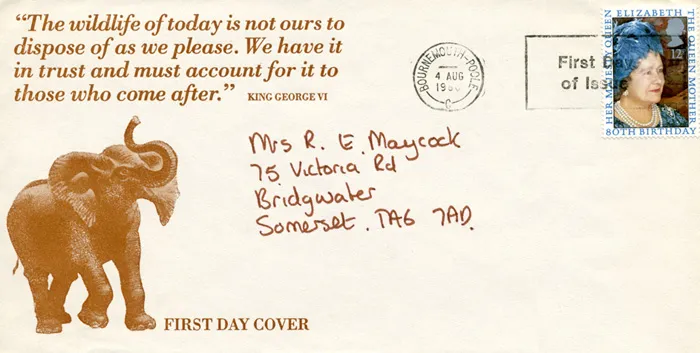 “The wildlife of today is not ours to
dispose of as we please. We have it
in trust and must account for it to
those who come after.” KING GEORGE VI
BOURNEMOUTH-POOLE
4 AUG
1980
C
First Day
of Issue
HER MAJESTY QUEEN
ELIZABETH
THE QUEEN MOTHER
12
80TH BIRTHDAY
Mrs R. E. Maycock
75 Victoria Rd
Bridgwater
Somerset. TA6 7AD.
FIRST DAY COVER